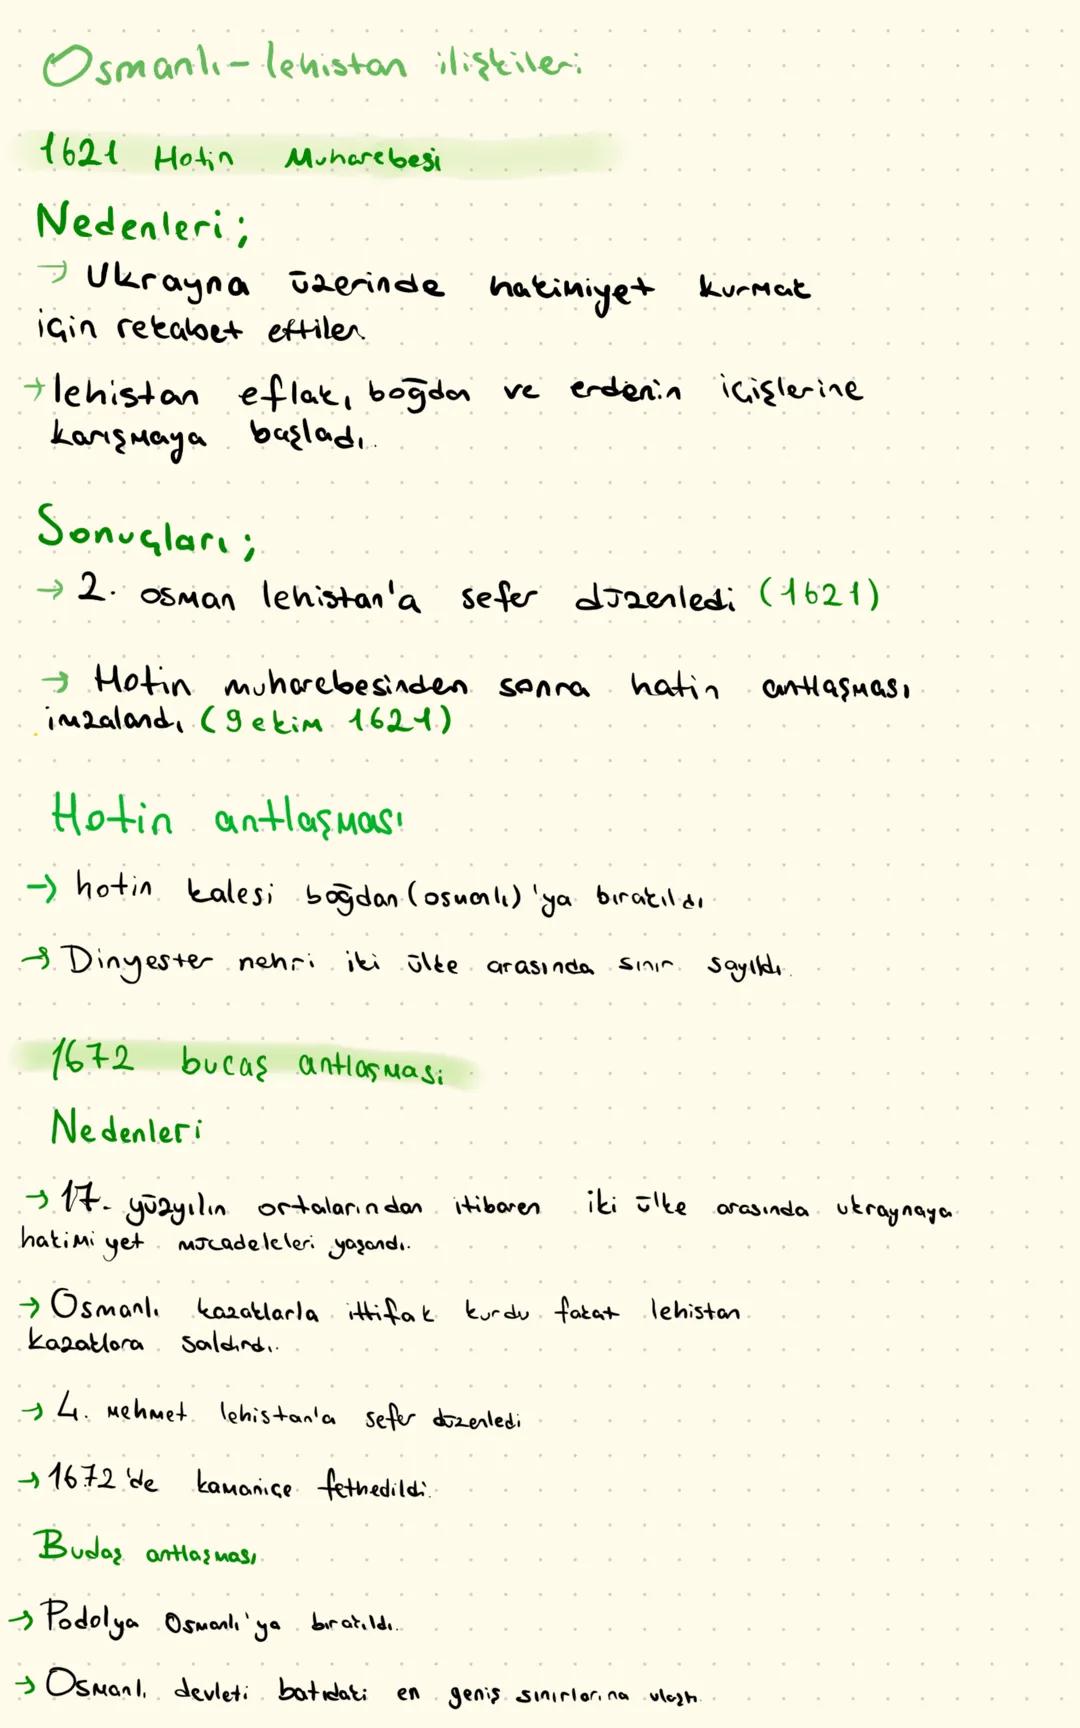 Osmanlı - lehistan ilişkileri
1621 Hotin Muharebesi
Nedenleri;
→ Ukrayna üzerinde hakimiyet kurmak
için rekabet ettiler.
→ lehistan eflak, boğdan ve erdenin içişlerine
karışmaya başladı.
Sonuçları;
→ 2. osman lehistan'a sefer düzenledi (1621)
→ Hotin muharebesinden sonra hatin antlaşması
imzalandı (9 ekim 1621)
Hotin antlaşması
→ hotin kalesi boğdan (osmanlı) 'ya bırakıldı
→ Dinyester nehri iki ülke arasında sınır sayıldı.
1672 bucaş antlaşması
Nedenleri
→ 17. yüzyılın ortalarından itibaren iki ülke arasında ukraynaya
hakimiyet mücadeleleri yaşandı.
→ Osmanlı kazaklarla ittifak kurdu fakat lehistan
kazaklara saldırdı.
→ 4. Mehmet lehistan'a sefer düzenledi
→ 1672'de kamaniçe fethedildi.
Budaş antlaşması
→ Podolya Osmanlı'ya bırakıldı.
→ Osmanlı devleti batıdaki en geniş sınırlarına ulaştı.